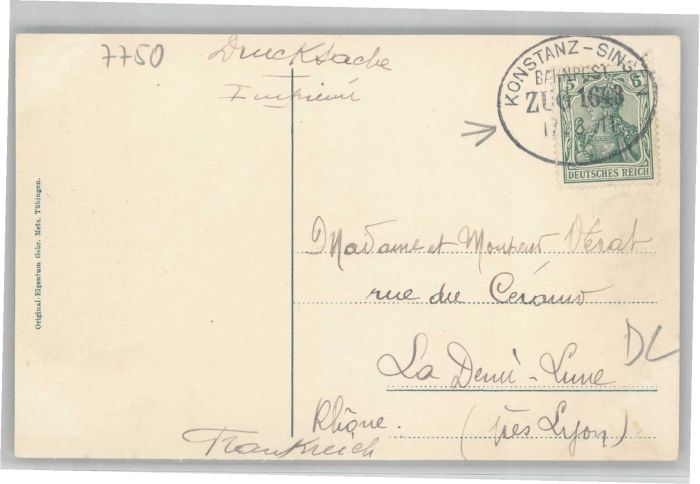 7750
Drucksache
Imprimé
KONSTANZ - SINGEN
BAHNPOST
ZUG 1643
5 5
DEUTSCHES REICH
Original-Eigentum Gebr. Metz, Tübingen.
Madame et Monsieur Vérat
rue du
La Demi-Lune
DL
Rhône. (près Lyon)
Frankreich